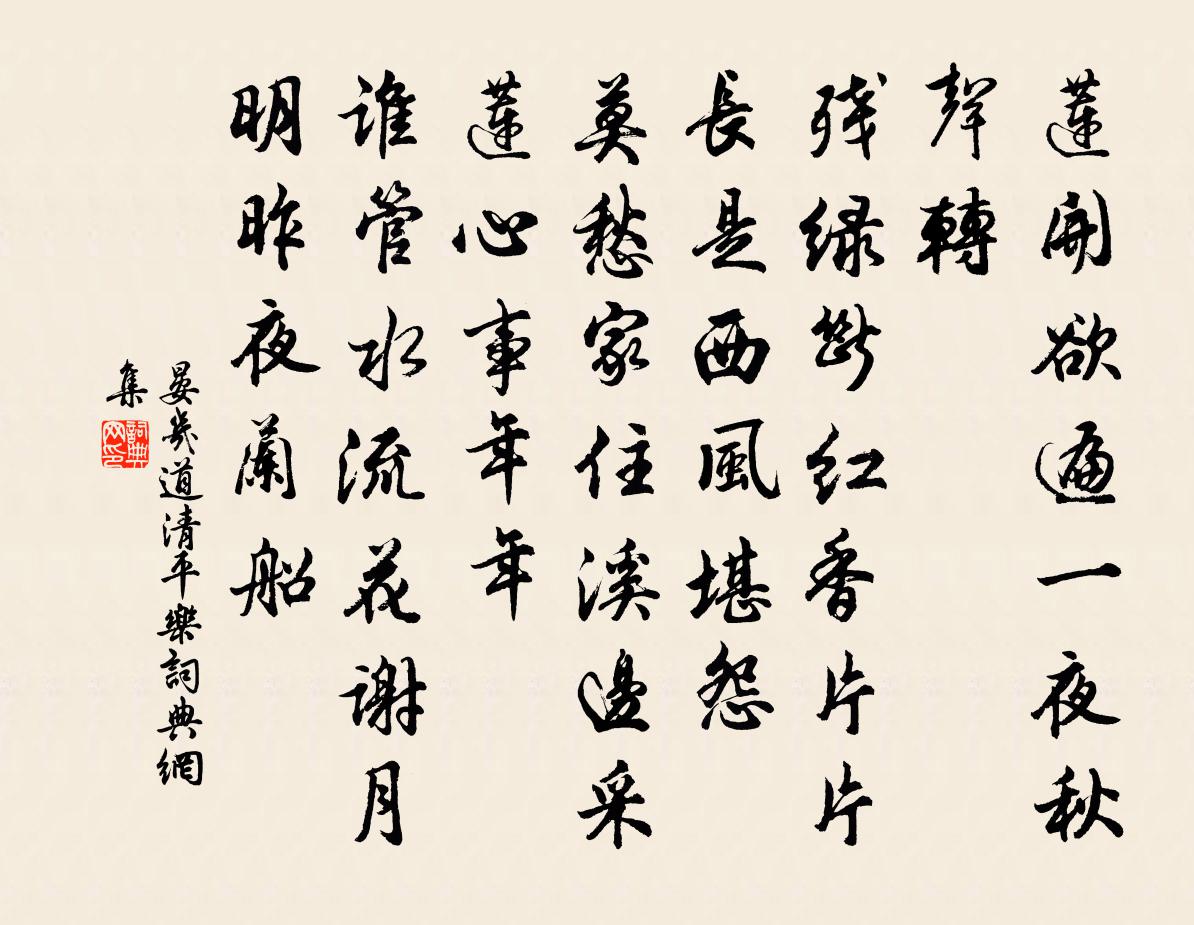 蓮開欲遍一夜秋
聲轉
殘綠斷紅香片片
長是西風堪怨
莫愁家住溪邊采
蓮心事年年
誰管水流花謝月
明昨夜蘭船
晏幾道清平樂詞典網
集
詞典網印